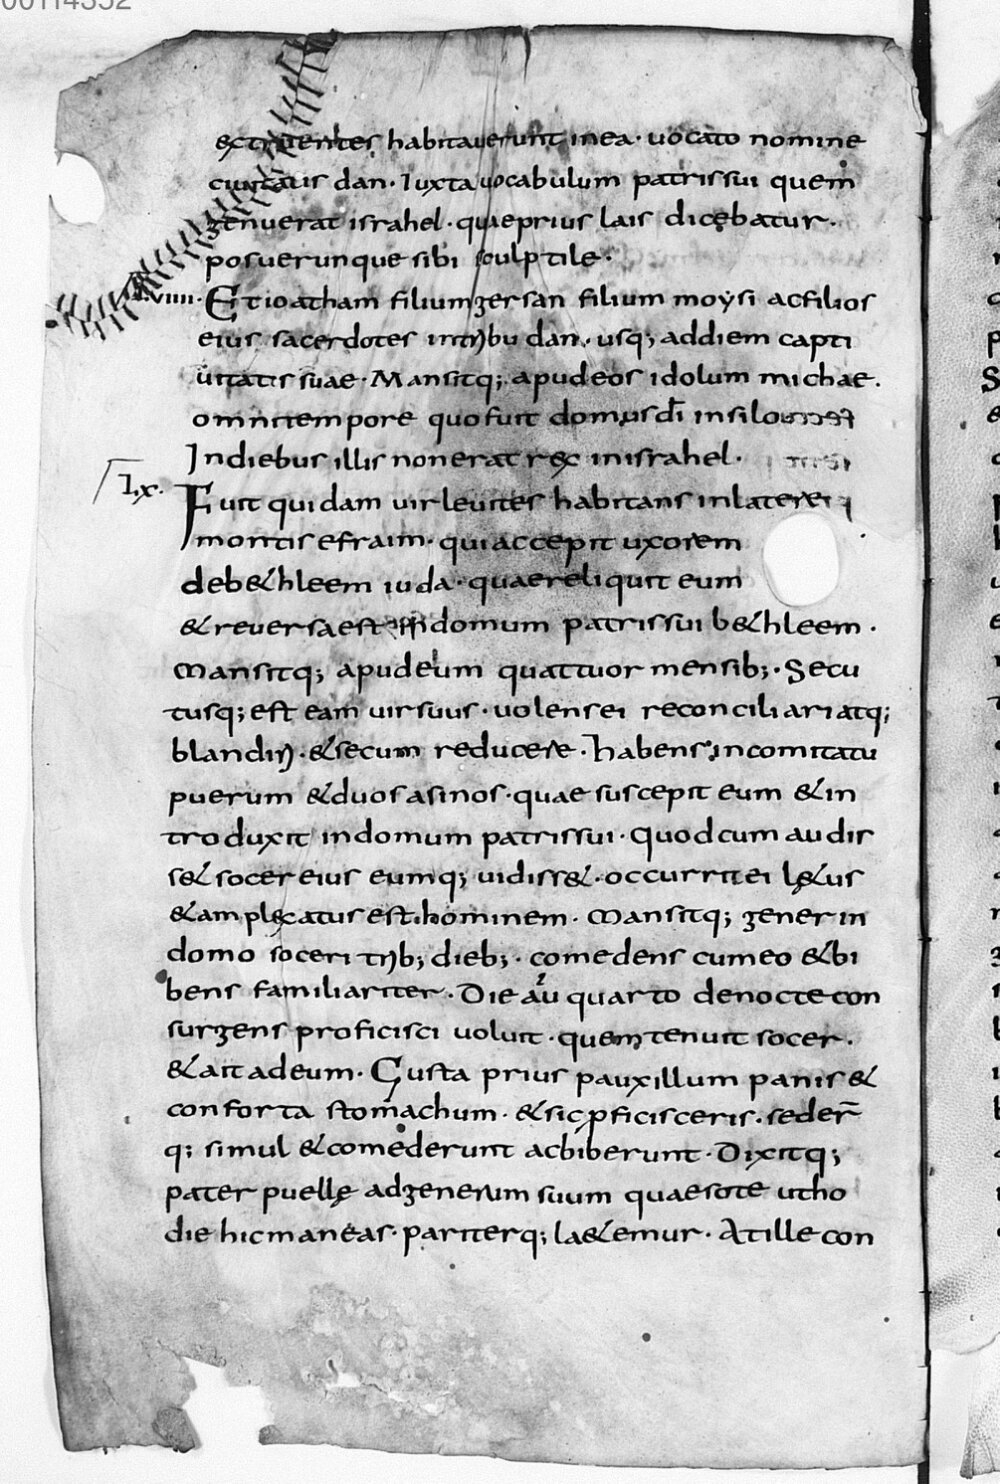 00114352
extruentes habitauerunt inea · uocato nomine
ciuitatis dan · Iuxta uocabulum patrissui quem
genuerat israhel · quaeprius lais dicębatur ·
posuerunque sibi sculptile ·
viiii · Etioatham filiumgersan filium moysi acfilios
eius sacerdotes intribu dan · usq; addiem capti
uitatis suae · Mansitq; apudeos idolum michae .
omnitempore quofuit domusdi insilo
Indiebus illis nonerat rex inisrahel ·
Lx. Fuit quidam uirleuites habitans inlaterei
montisefraim · quiaccepit uxorem
deb&hleem iuda · quaereliquit eum
&reuersaest indomum patrissui b&hleem ·
Mansitq; apudeum quattuor mensib; · Secu
tusq; est eam uirsuus · uolensei reconciliariatq;
blandiri · &secum reducere · habens incomitatu
puerum &duosasinos · quae suscepit eum &in
troduxit indomum patrissui · Quodcum audis
s& socer eius eumq; uidiss& · occurritei l&us
&amplęxatus est hominem · Mansitq; gener in
domo soceri trib; dieb; · comedens cumeo &bi
bens familiariter · Die au quarto denoctecon
surgens proficisci uoluit · quemtenuit socer ·
&ait adeum · Gusta prius pauxillum panis &
conforta stomachum · &sic pficisceris · seder
q; simul &comederunt acbiberunt · Dixitq;
pater puellę adgenerum suum quaesote utho
die hicmaneas · pariterq; la&emur · Atille con